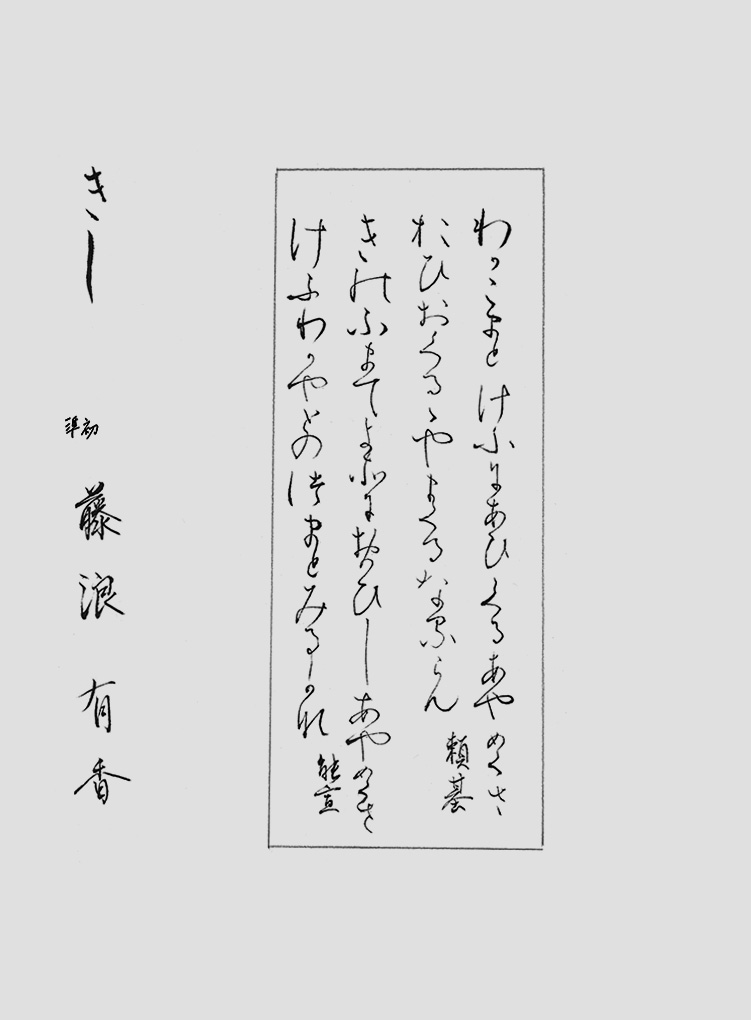 わかこまとけふにあひくるあやめくさ
おひおくるゝやまくるなるらん 頼基
きのふまてよそにおもひしあやめくさ
けふわかやとのつまとみるかな 能宣
きし 準初 藤浪有香